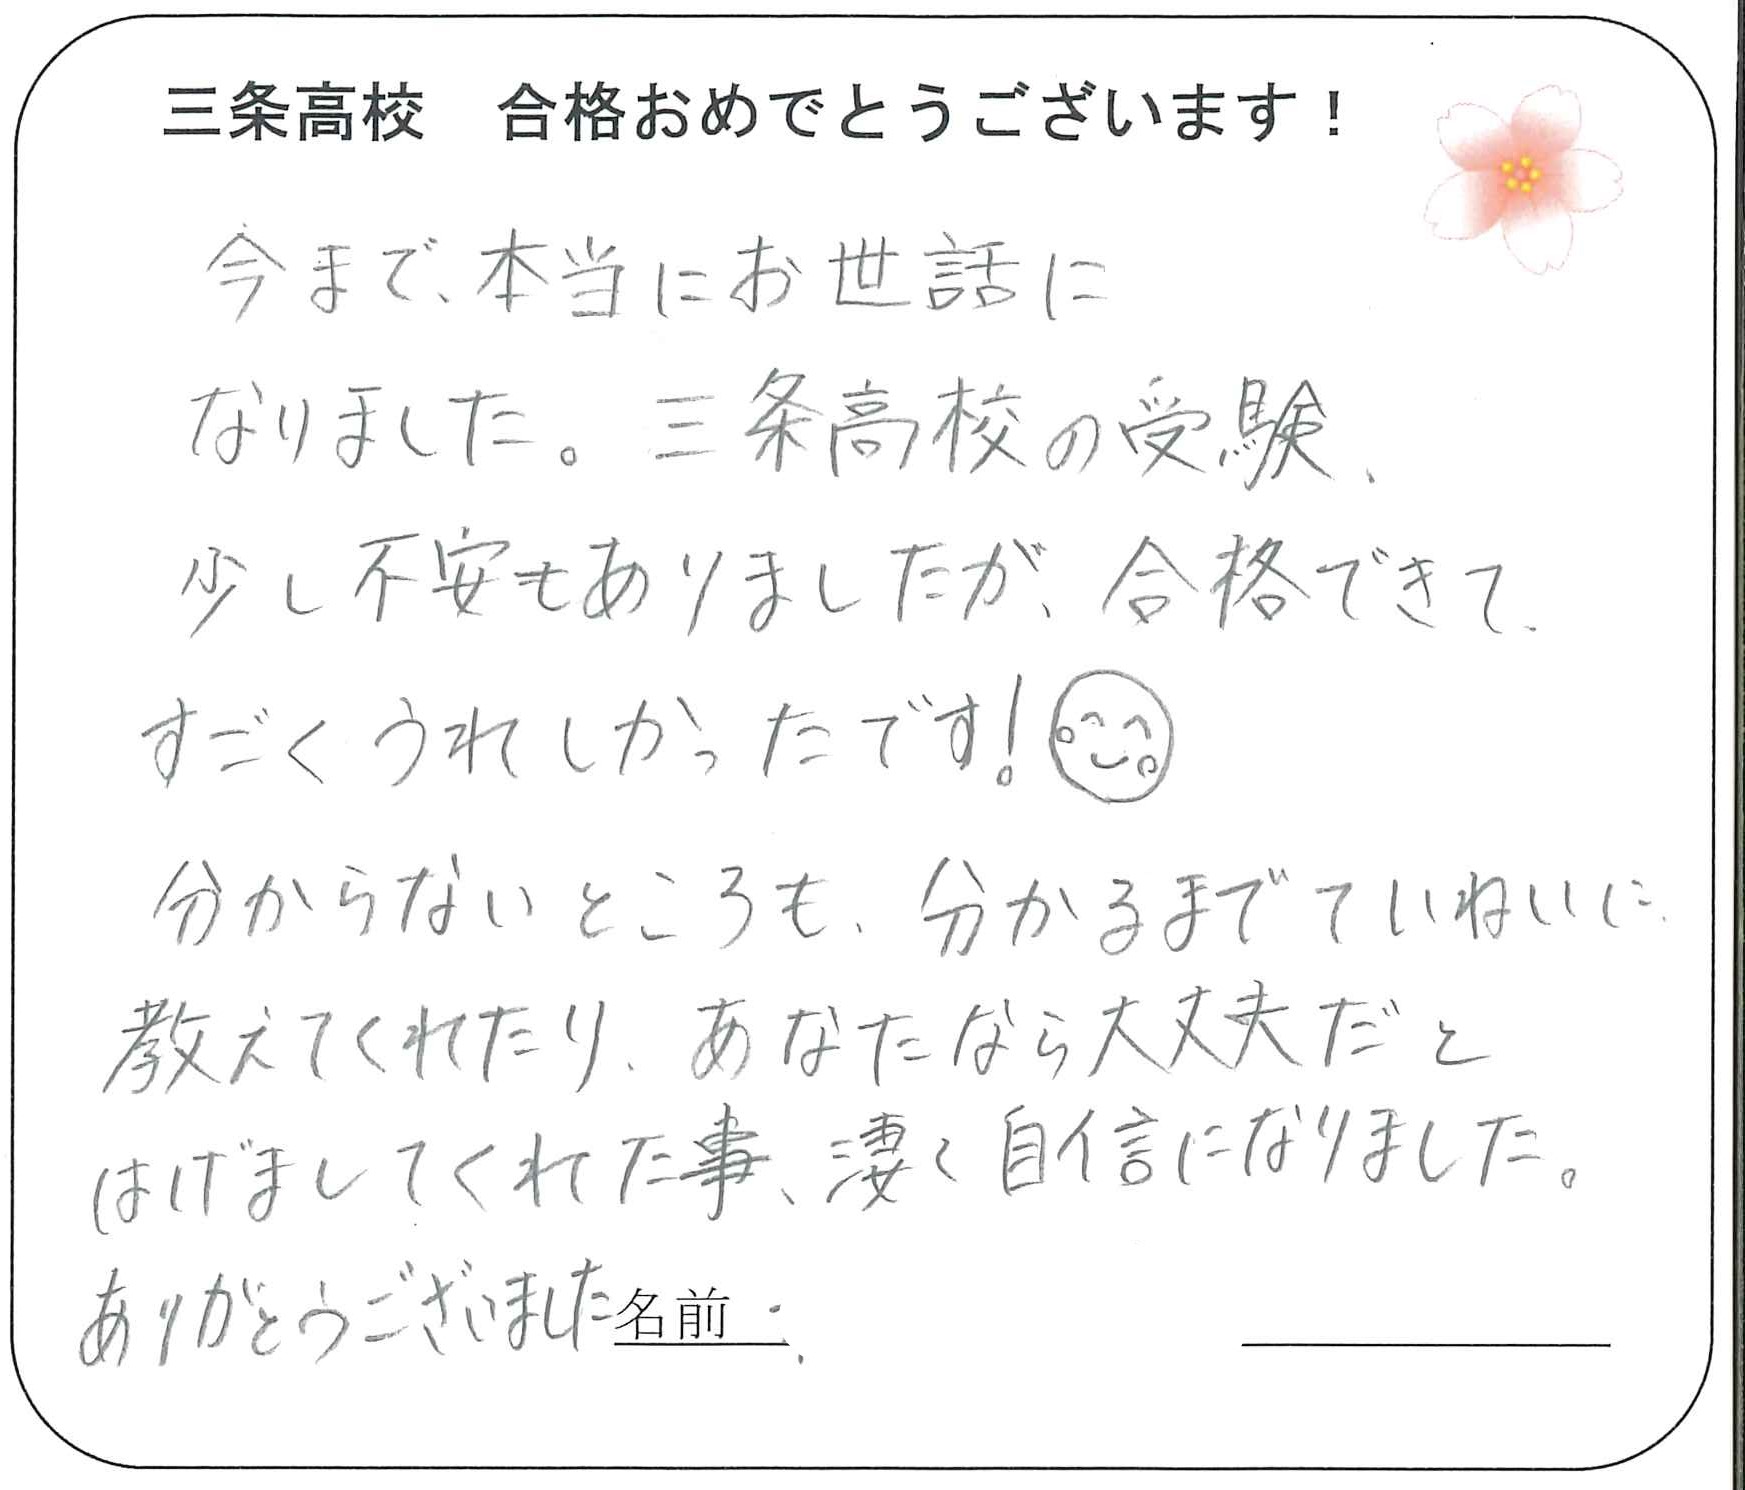 三条高校　合格おめでとうございます！
今まで、本当にお世話に
なりました。三条高校の受験、
少し不安もありましたが、合格できて、
すごくうれしかったです！
分からないところも、分かるまでていねいに、
教えてくれたり、あなたなら大丈夫だと
はげましてくれた事、凄く自信になりました。
ありがとうございました
名前：